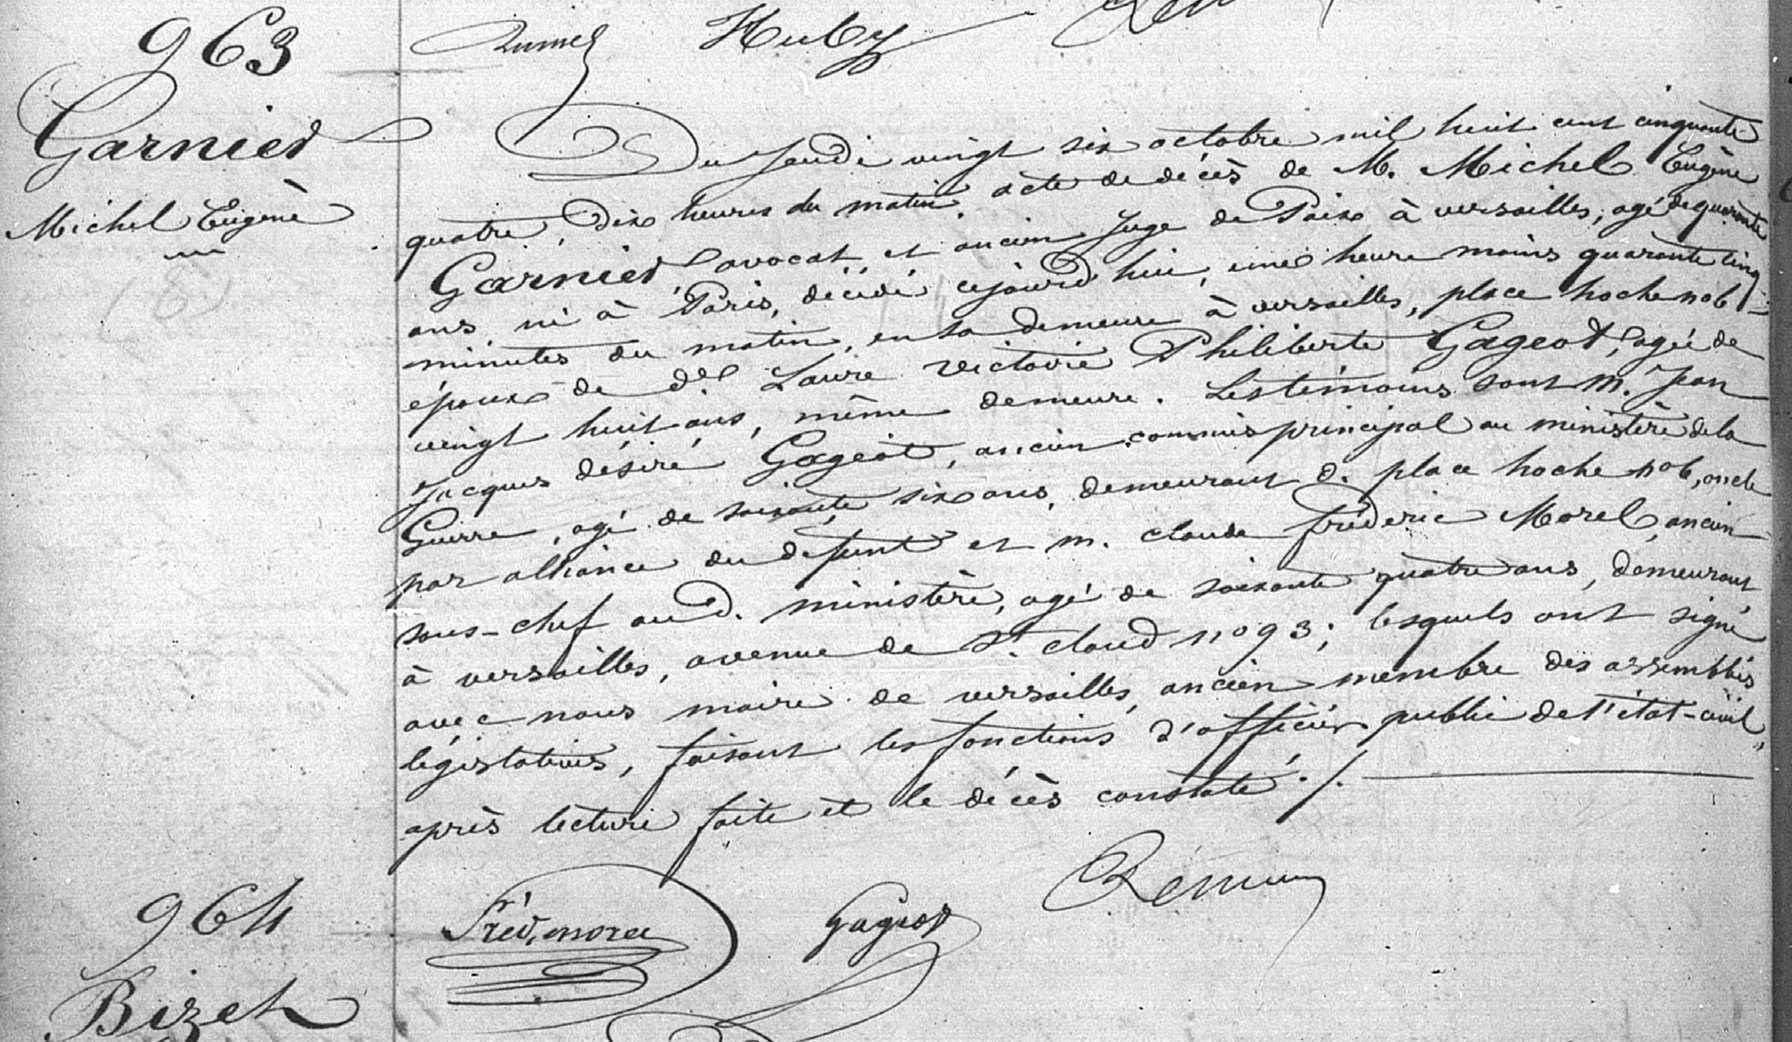 963
Huby
Garnier
Michel Eugène
Du Jeudi vingt six octobre mil huit cent cinquante
quatre, dix heures du matin, acte de décès de M. Michel Eugène
Garnier, avocat et ancien Juge de Paix à versailles, agé de quarante
ans né à Paris, décédé cejourd'hui, une heure moins quarante cinq
minutes du matin, en sa demeure à versailles, place hoche no 6
époux de de Laure Victoire Philiberte Gageot, agée de
vingt huit ans, même demeure. Les témoins sont M. Jean
Jacques désiré Gageot, ancien commis principal au ministère de la
Guerre, agé de soixante six ans, demeurant d. place hoche no 6, oncle
par alliance du défunt et m. claude fréderic Morel, ancien
sous-chef aud. ministère, agé de soixante quatre ans, demeurant
à versailles, avenue de St. cloud no 93; lesquels ont signé
avec nous maire de versailles, ancien membre des assemblées
législatives, faisant les fonctions d'officier public de l'état-civil,
après lecture faite et le décès constaté ./.
Réd. morel Gageot Rémilly
964
Bizet